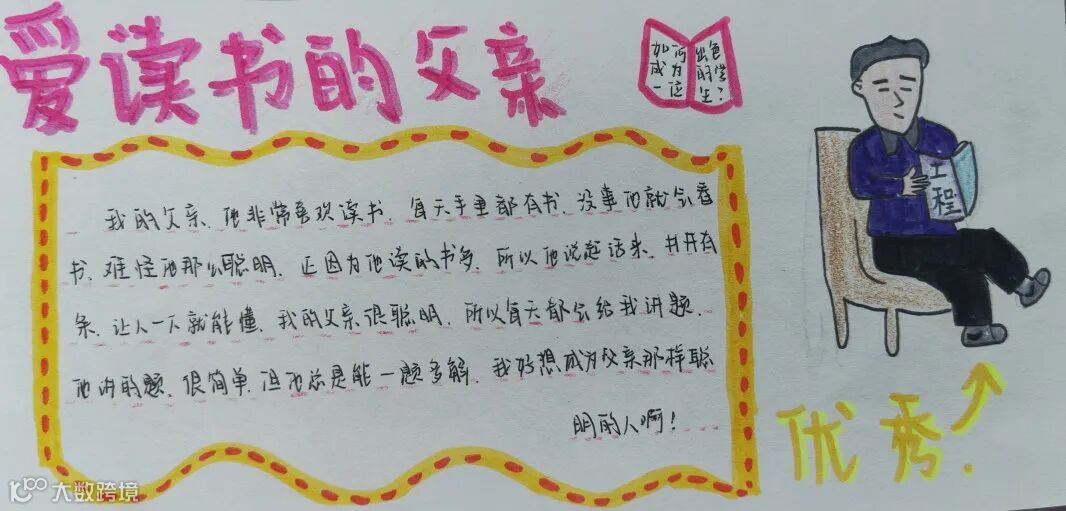 爱读书的父亲
如何
成为
一位
出色
的学
生？
工程
我的父亲、他非常喜欢读书、每天手里都有书、没事他就会看
书、难怪他那么聪明、正因为他读的书多、所以他说起话来、井井有
条、让人一下就能懂、我的父亲很聪明、所以每天都会给我讲题、
他讲的题、很简单、但他总是能一题多解、我好想成为父亲那样聪
明的人啊！
优秀.
大数跨境